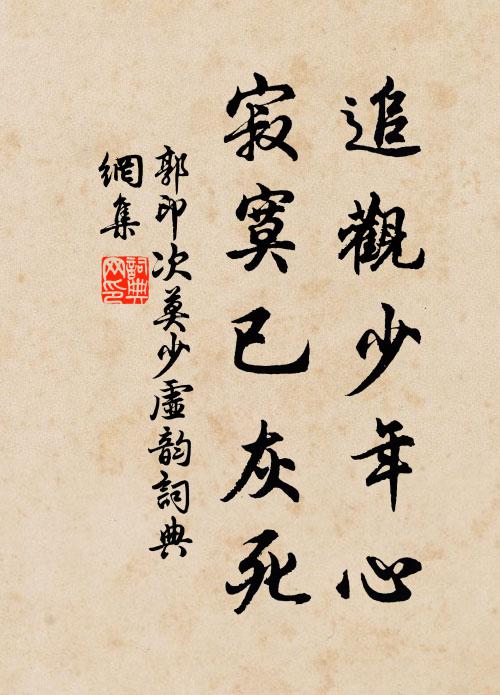 追觀少年心
寂寞已灰死
郭印次莫少虛韵詞典
網集
詞典
网印